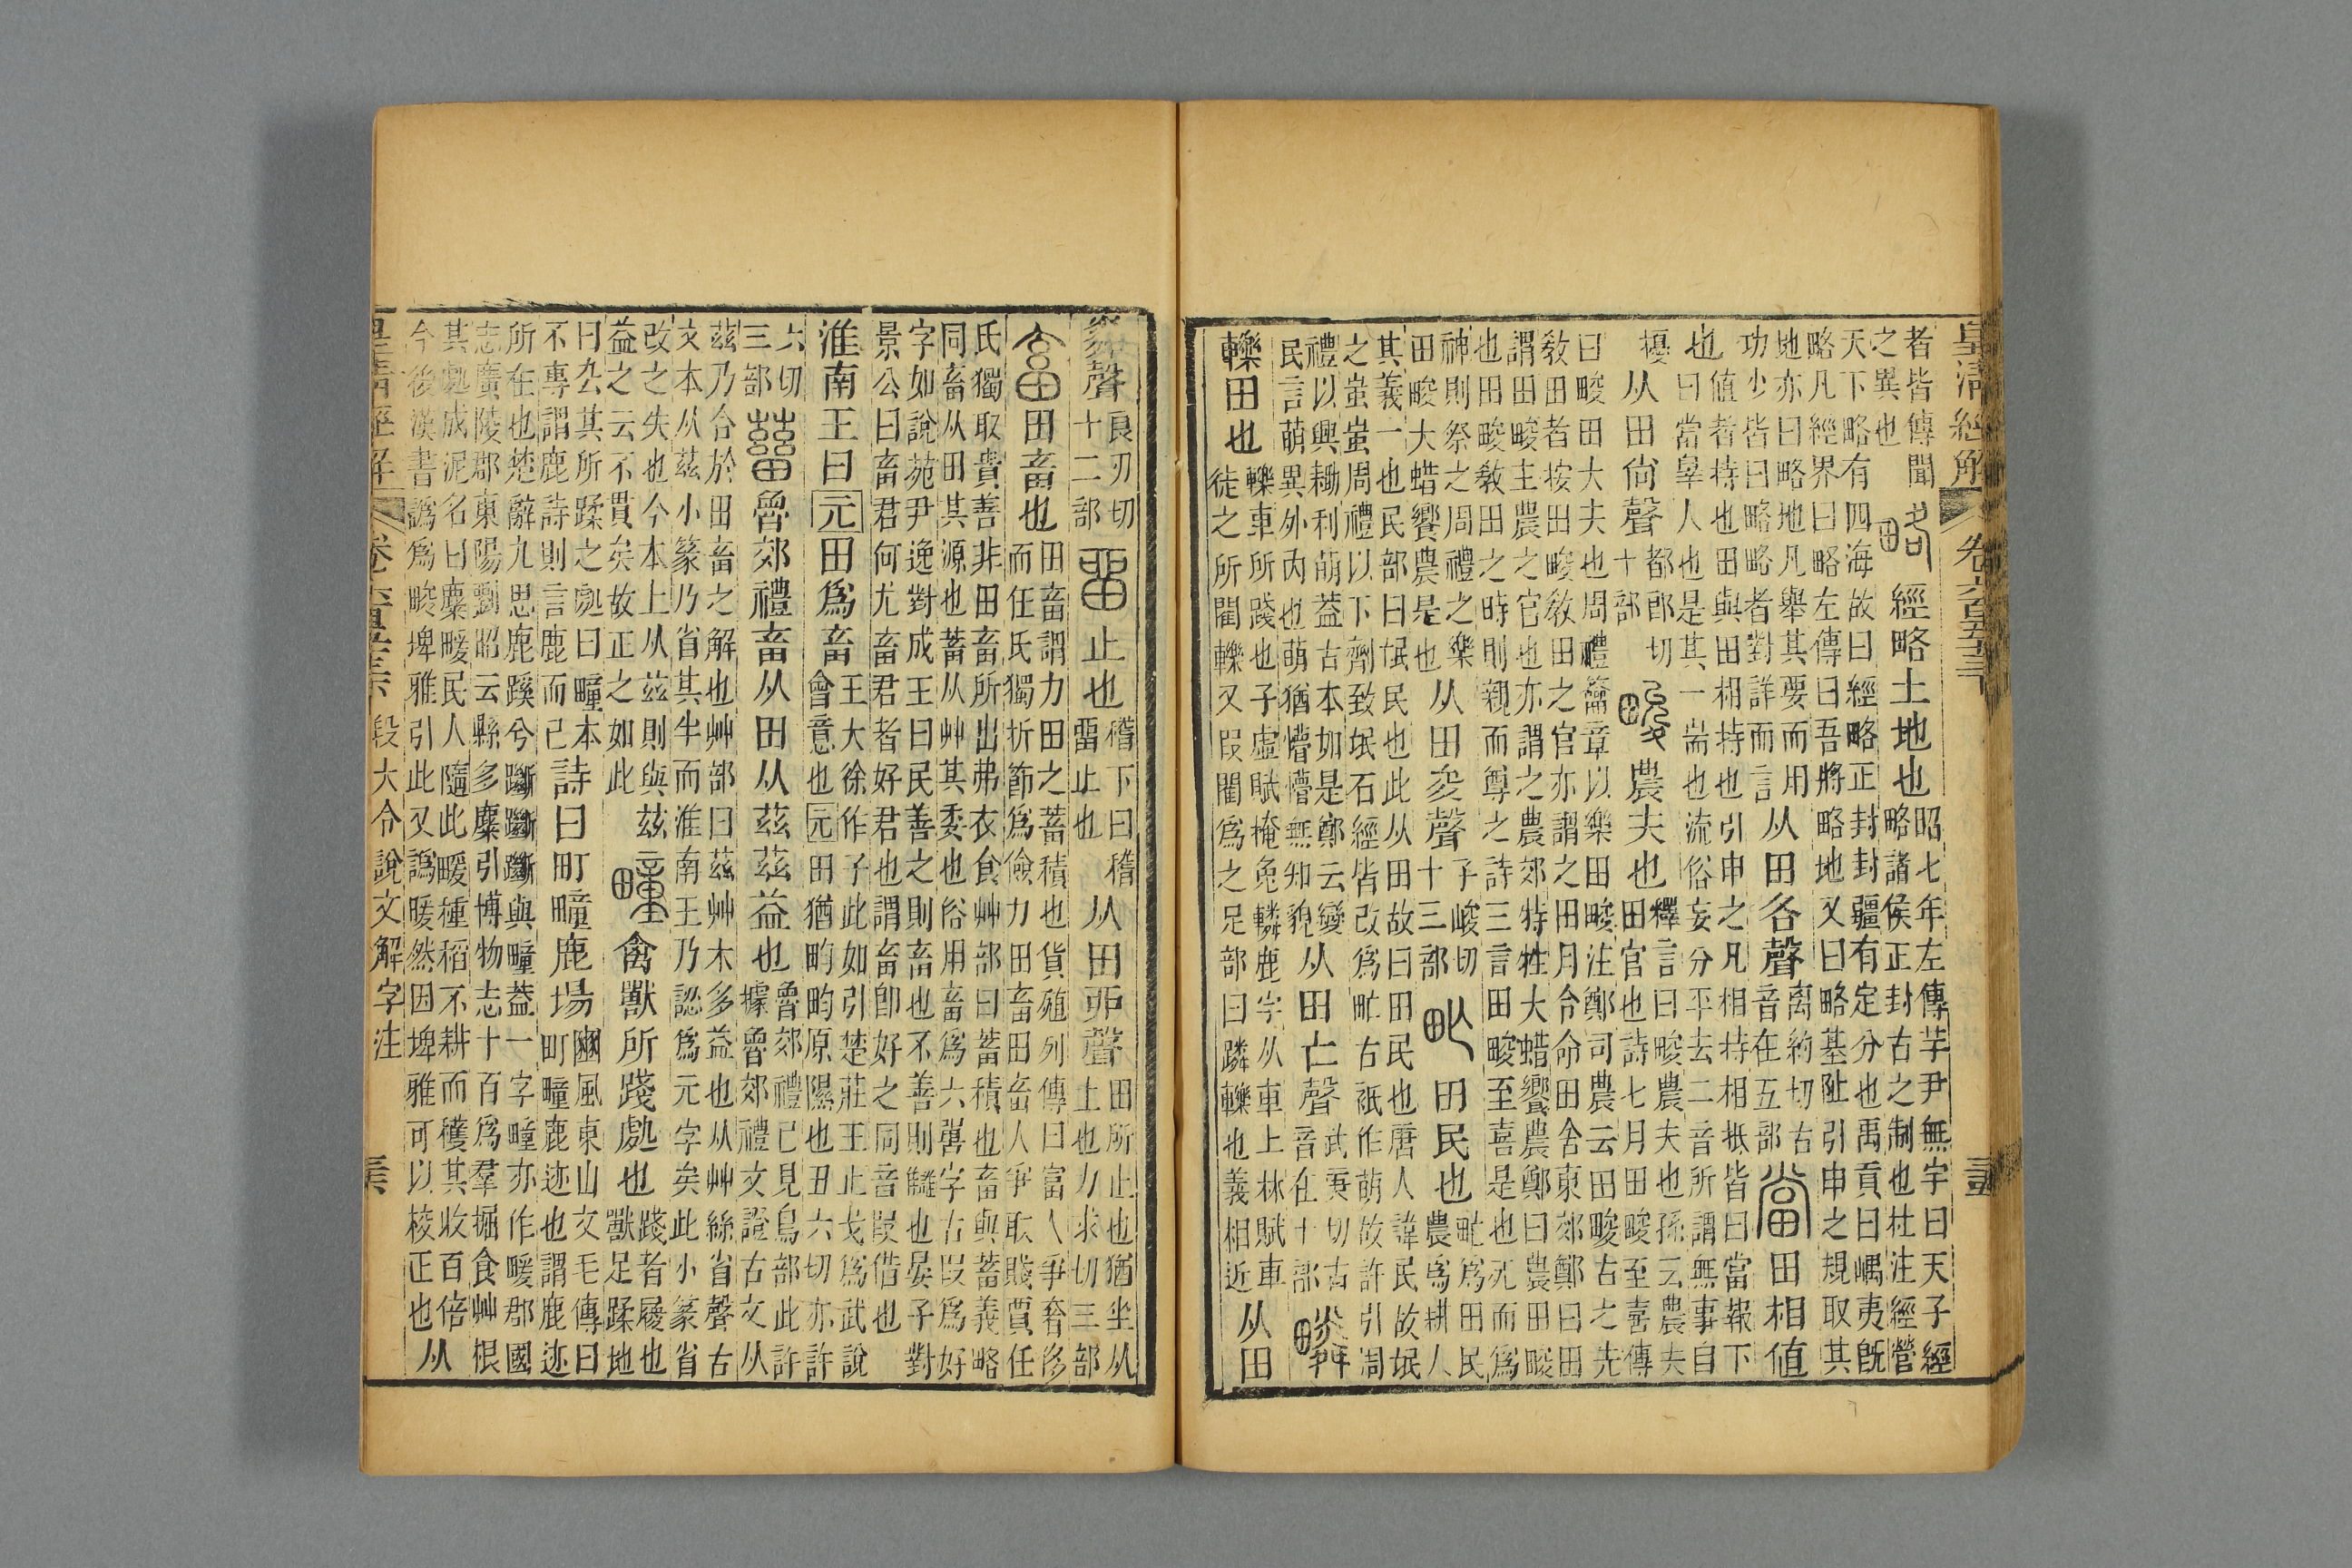 皇清經解 卷六百五十三
者皆傳聞
之異也
略 經略土地也
昭七年左傳芋尹無宇曰天子經
略諸侯正封古之制也杜注經營
天下略有四海故曰經略正封封疆有定分也禹貢曰嵎夷旣
略凡經界曰略左傳曰吾將略地又曰略基阯引申之規取其
地亦曰略地凡舉其要而用
功少皆曰略略者對詳而言
从田各聲
离約切古
音在五部
當 田相值
也
值者持也田與田相持也引申之凡相持相抵皆曰當報下
曰當辠人也是其一耑也流俗妄分平去二音所謂無事自
擾
从田尙聲
都郎切
十部
畯 農夫也
釋言曰畯農夫也孫云農夫
田官也詩七月田畯至喜傳
曰畯田大夫也周禮籥章以樂田畯注鄭司農云田畯古之先
敎田者按出畯敎田之官亦謂之田月令命田舍東郊鄭曰田
謂田畯主農之官也亦謂之農郊特牲大蜡饗農鄭曰農田畯
也田畯敎田之時則親而尊之詩三言田畯至喜是也死而爲
神則祭之周禮之樂
田畯大蜡饗農是也
从田夋聲
子峻切
十三部
甿 田民也
甿爲田民
農爲耕人
其義一也民部曰氓民也此从田故曰田民也唐人諱民故氓
之蚩蚩周禮以下劑致氓石經皆改爲甿古衹作萌故許引周
禮以興耡利萌葢古本如是鄭云變
民言萌異外內也萌猶懵懵無知皃
从田亡聲
武庚切古
音在十部
疄 轢田也
轢車所踐也子虛賦掩兔轔鹿字从車上林賦車
徒之所閵轢又叚閵爲之足部曰蹸轢也義相近
从田
粦聲
良刃切
十二部
畱 止也
稽下曰稽
畱止也
从田丣聲
田所止也猶坐从
土也力求切三部
畜 田畜也
田畜謂力田之蓄積也貨殖列傳曰富人爭奢侈
而任氏獨折節爲儉力田畜田畜人爭取賤賈任
氏獨取貴善非田畜所出弗衣食艸部曰蓄積也畜與蓄義略
同畜从田其源也蓄从艸其委也俗用畜爲六嘼字古叚爲好
字如說苑尹逸對成王曰民善之則畜也不善則讎也晏子對
景公曰畜君何尤畜君者好君也謂畜卽好之同音叚借也
淮南王曰元田爲畜
王大徐作子此如引楚莊王止戈爲武說
會意也元田猶畇畇原隰也丑六切亦許
六切
三部
𤲸 魯郊禮畜从田从茲茲益也
魯郊禮已見鳥部此許
據魯郊禮文證古文从
茲乃合於田畜之解也艸部曰茲艸木多益也从艸絲省聲古
文本从茲小篆乃省其半而淮南王乃認爲元字矣此小篆省
改之失也今本上从茲則與茲
益之云不貫矣故正之如此
疃 禽獸所踐處也
踐者履也
獸足蹂地
曰厹其所蹂之處曰疃本
不專謂鹿詩則言鹿而已
詩曰町疃鹿場
豳風東山文毛傳曰
町疃鹿迹也謂鹿迹
所在也楚辭九思鹿蹊兮𨇽𨇽𨇽與疃葢一字疃亦作畽郡國
志廣陵郡東陽劉昭云縣多麋引博物志十百爲羣掘食艸根
其處成泥名曰麋畽民人隨此畽種稻不耕而穫其收百倍
今後漢書譌爲畯埤雅引此又譌暖然因埤雅可以校正也
从
皇清經解 卷六百五十三 段大令說文解字注